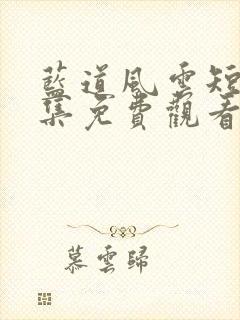 藍道風雲短
集免費觀看
慕雲歸